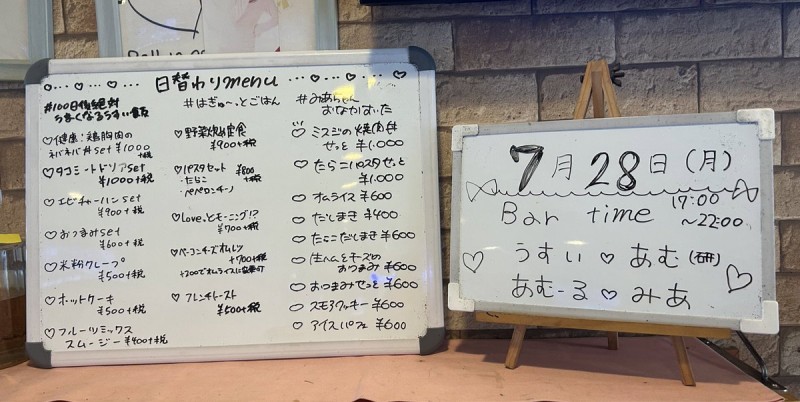 日替わりmenu
#100日後絶対
うまくなるうすい飯
♡健康!鶏胸肉の
ネバネバ丼set ¥1000
+税
♡タコミートドリアset
¥1000+税
♡エビチャーハンset
¥900+税
♡おつまみset
¥600+税
♡米粉クレープ
¥500+税
♡ホットケーキ
¥500+税
♡フルーツミックス
スムージー ¥400+税
#はぎゅ〜っとごはん
♡野菜炒め定食
¥900+税
♡パスタセット ¥800
+税
・たらこ
・ペペロンチーノ
♡Love,とモーニング!?
¥700+税
♡ベーコンチーズオムレツ
¥700+税
+200でオムライスに変更可
♡フレンチトースト
¥500+税
#みあちゃん
おなかすいた
♡ミスジの焼肉丼
せっと ¥1.000
♡たらこパスタせっと
¥1.000
♡オムライス ¥600
♡だしまき ¥400
♡たらこだしまき ¥600
♡生ハムとチーズの
おつまみ ¥600
♡おつまみせっと ¥600
♡スモアクッキー ¥600
♡アイスパフェ ¥600
7月28日(月)
Bar time 17:00
~22:00
うすい♡あむ(研)
あむーる♡みあ